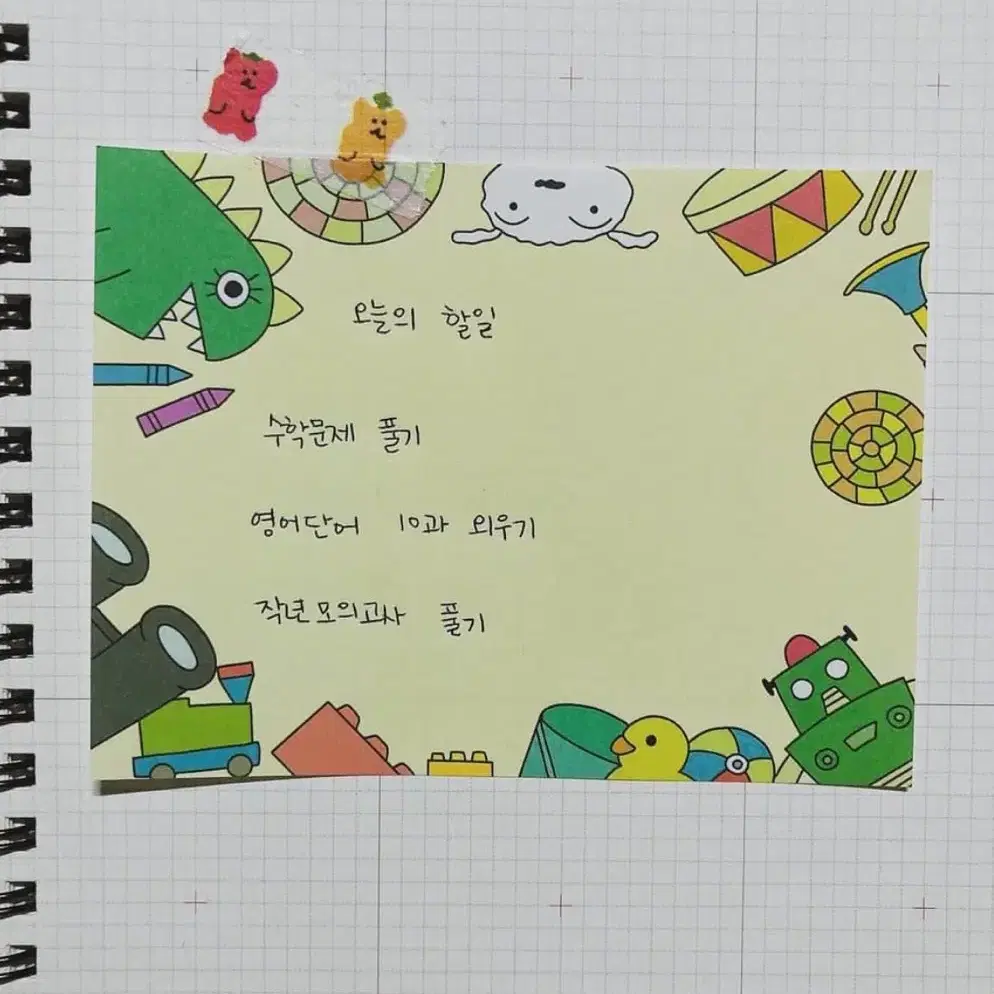 오늘의 할일
수학문제 풀기
영어단어 10과 외우기
작년모의고사 풀기